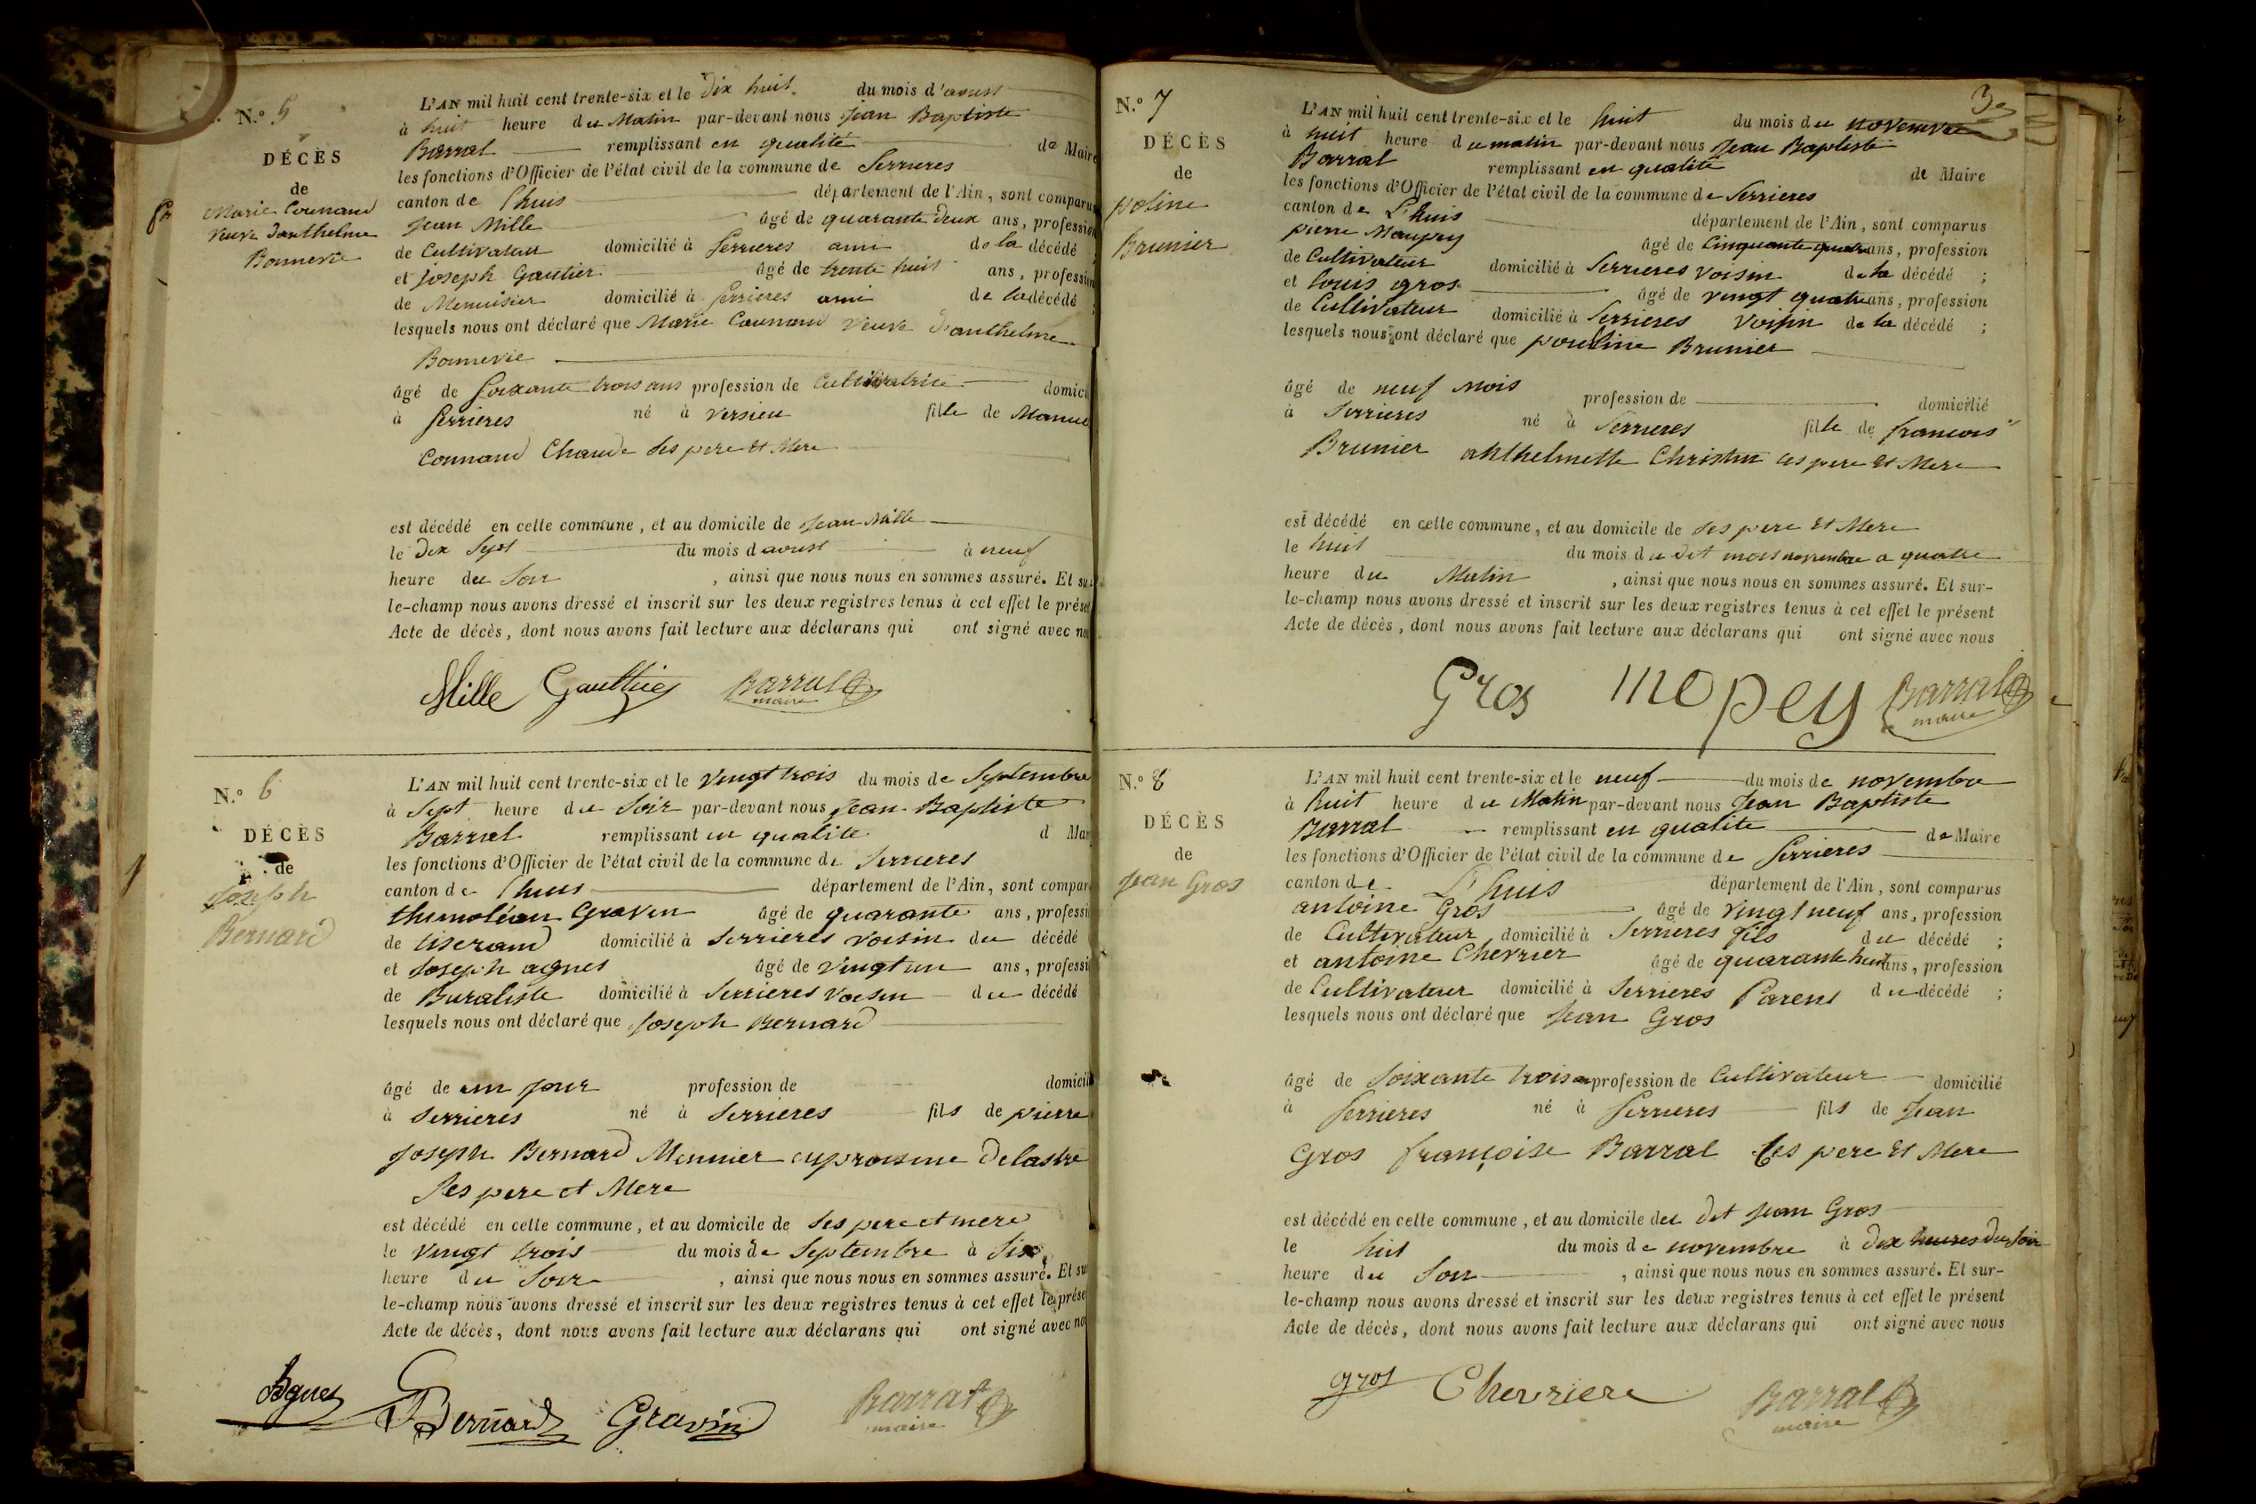 N.o 5
DÉCÈS
de
Marie Counand
veuve danthelme
Bonnevie
L'AN mil huit cent trente-six et le dix huit du mois d'aoust
à huit heure du Matin par-devant nous Jean Baptiste
Barral remplissant en qualité de Maire
les fonctions d'Officier de l'état civil de la commune de Serrieres
canton de Lhuis département de l'Ain, sont comparus
Jean Mille âgé de quarante deux ans, profession
de Cultivateur domicilié à Serrieres ami de la décédé
et Joseph Gautier âgé de trente huit ans, profession
de Menuisier domicilié à Serrieres ami de la décédé ;
lesquels nous ont déclaré que Marie Counand veuve d'anthelme
Bonnevie
âgé de soixante trois ans profession de Cultivatrice domici
à Serrieres né à versieu fille de Manuel
Counand Chaude ses pere et Mere
est décédé en cette commune, et au domicile de Jean Mille
le dix sept du mois d aoust à neuf
heure du Soir , ainsi que nous nous en sommes assuré. Et su
le-champ nous avons dressé et inscrit sur les deux registres tenus à cet effet le prése
Acte de décès, dont nous avons fait lecture aux déclarans qui ont signé avec no
Mille Gautthier Barral
maire
N.o 6
DÉCÈS
de
Joseph
Bernard
L'AN mil huit cent trente-six et le vingt trois du mois de Septembre
à Sept heure du Soir par-devant nous Jean Baptiste
Barral remplissant en qualite d Mai
les fonctions d'Officier de l'état civil de la commune de Serrieres
canton de Lhuis département de l'Ain, sont compar
thimoléon Gravin âgé de quarante ans, professi
de tiserand domicilié à Serrieres voisin du décédé
et Joseph agnes âgé de vingt un ans, professi
de Buraliste domicilié à Serrieres voisin du décédé
lesquels nous ont déclaré que Joseph Bernard
âgé de un jour profession de domicil
à Serrieres né à Serrieres fils de pierre
Joseph Bernard Meunier euproisine Delastre
Ses pere et Mere
est décédé en cette commune, et au domicile de ses pere et mere
le vingt trois du mois de Septembre à six
heure du Soir , ainsi que nous nous en sommes assuré. Et su
le-champ nous avons dressé et inscrit sur les deux registres tenus à cet effet le prése
Acte de décès, dont nous avons fait lecture aux déclarans qui ont signé avec no
Agnes Bernard Gravin Barral
maire
3
N.o 7
DÉCÈS
de
poline
Brunier
L'AN mil huit cent trente-six et le huit du mois du novembre
à huit heure du matin par-devant nous Jean Baptiste
Barral remplissant en qualité de Maire
les fonctions d'Officier de l'état civil de la commune de Serrieres
canton de L'huis département de l'Ain, sont comparus
pierre Maupey âgé de Cinquante quatre ans, profession
de Cultivateur domicilié à Serrieres voisin de la décédé ;
et louis gros âgé de vingt quatre ans, profession
de Cultivateur domicilié à Serrieres voisin de la décédé ;
lesquels nous ont déclaré que pouline Brunier
âgé de neuf mois profession de domicilié
à Serrieres né à Serrieres fille de francois
Brunier anthelmette Christin ces pere et Mere
est décédé en cette commune, et au domicile de ses pere et Mere
le huit du mois du dit mois novembre a quatre
heure du Matin , ainsi que nous nous en sommes assuré. Et sur-
le-champ nous avons dressé et inscrit sur les deux registres tenus à cet effet le présent
Acte de décès, dont nous avons fait lecture aux déclarans qui ont signé avec nous
Gros mopey Barral
maire
N.o 8
DÉCÈS
de
Jean Gros
L'AN mil huit cent trente-six et le neuf du mois de novembre
à huit heure du Matin par-devant nous Jean Baptiste
Barral remplissant en qualite de Maire
les fonctions d'Officier de l'état civil de la commune de Serrieres
canton de L'huis département de l'Ain, sont comparus
antoine Gros âgé de vingt neuf ans, profession
de Cultivateur domicilié à Serrieres fils du décédé ;
et antoine Chevrier âgé de quarante huit ans, profession
de Cultivateur domicilié à Serrieres Parent du décédé ;
lesquels nous ont déclaré que Jean Gros
âgé de soixante trois an profession de Cultivateur domicilié
à Serrieres né à Serrieres fils de Jean
Gros françoise Barral ses pere et Mere
est décédé en cette commune, et au domicile du dit Jean Gros
le huit du mois de novembre à dix heures du soir
heure du Soir , ainsi que nous nous en sommes assuré. Et sur-
le-champ nous avons dressé et inscrit sur les deux registres tenus à cet effet le présent
Acte de décès, dont nous avons fait lecture aux déclarans qui ont signé avec nous
gros Chevriere Barral
maire